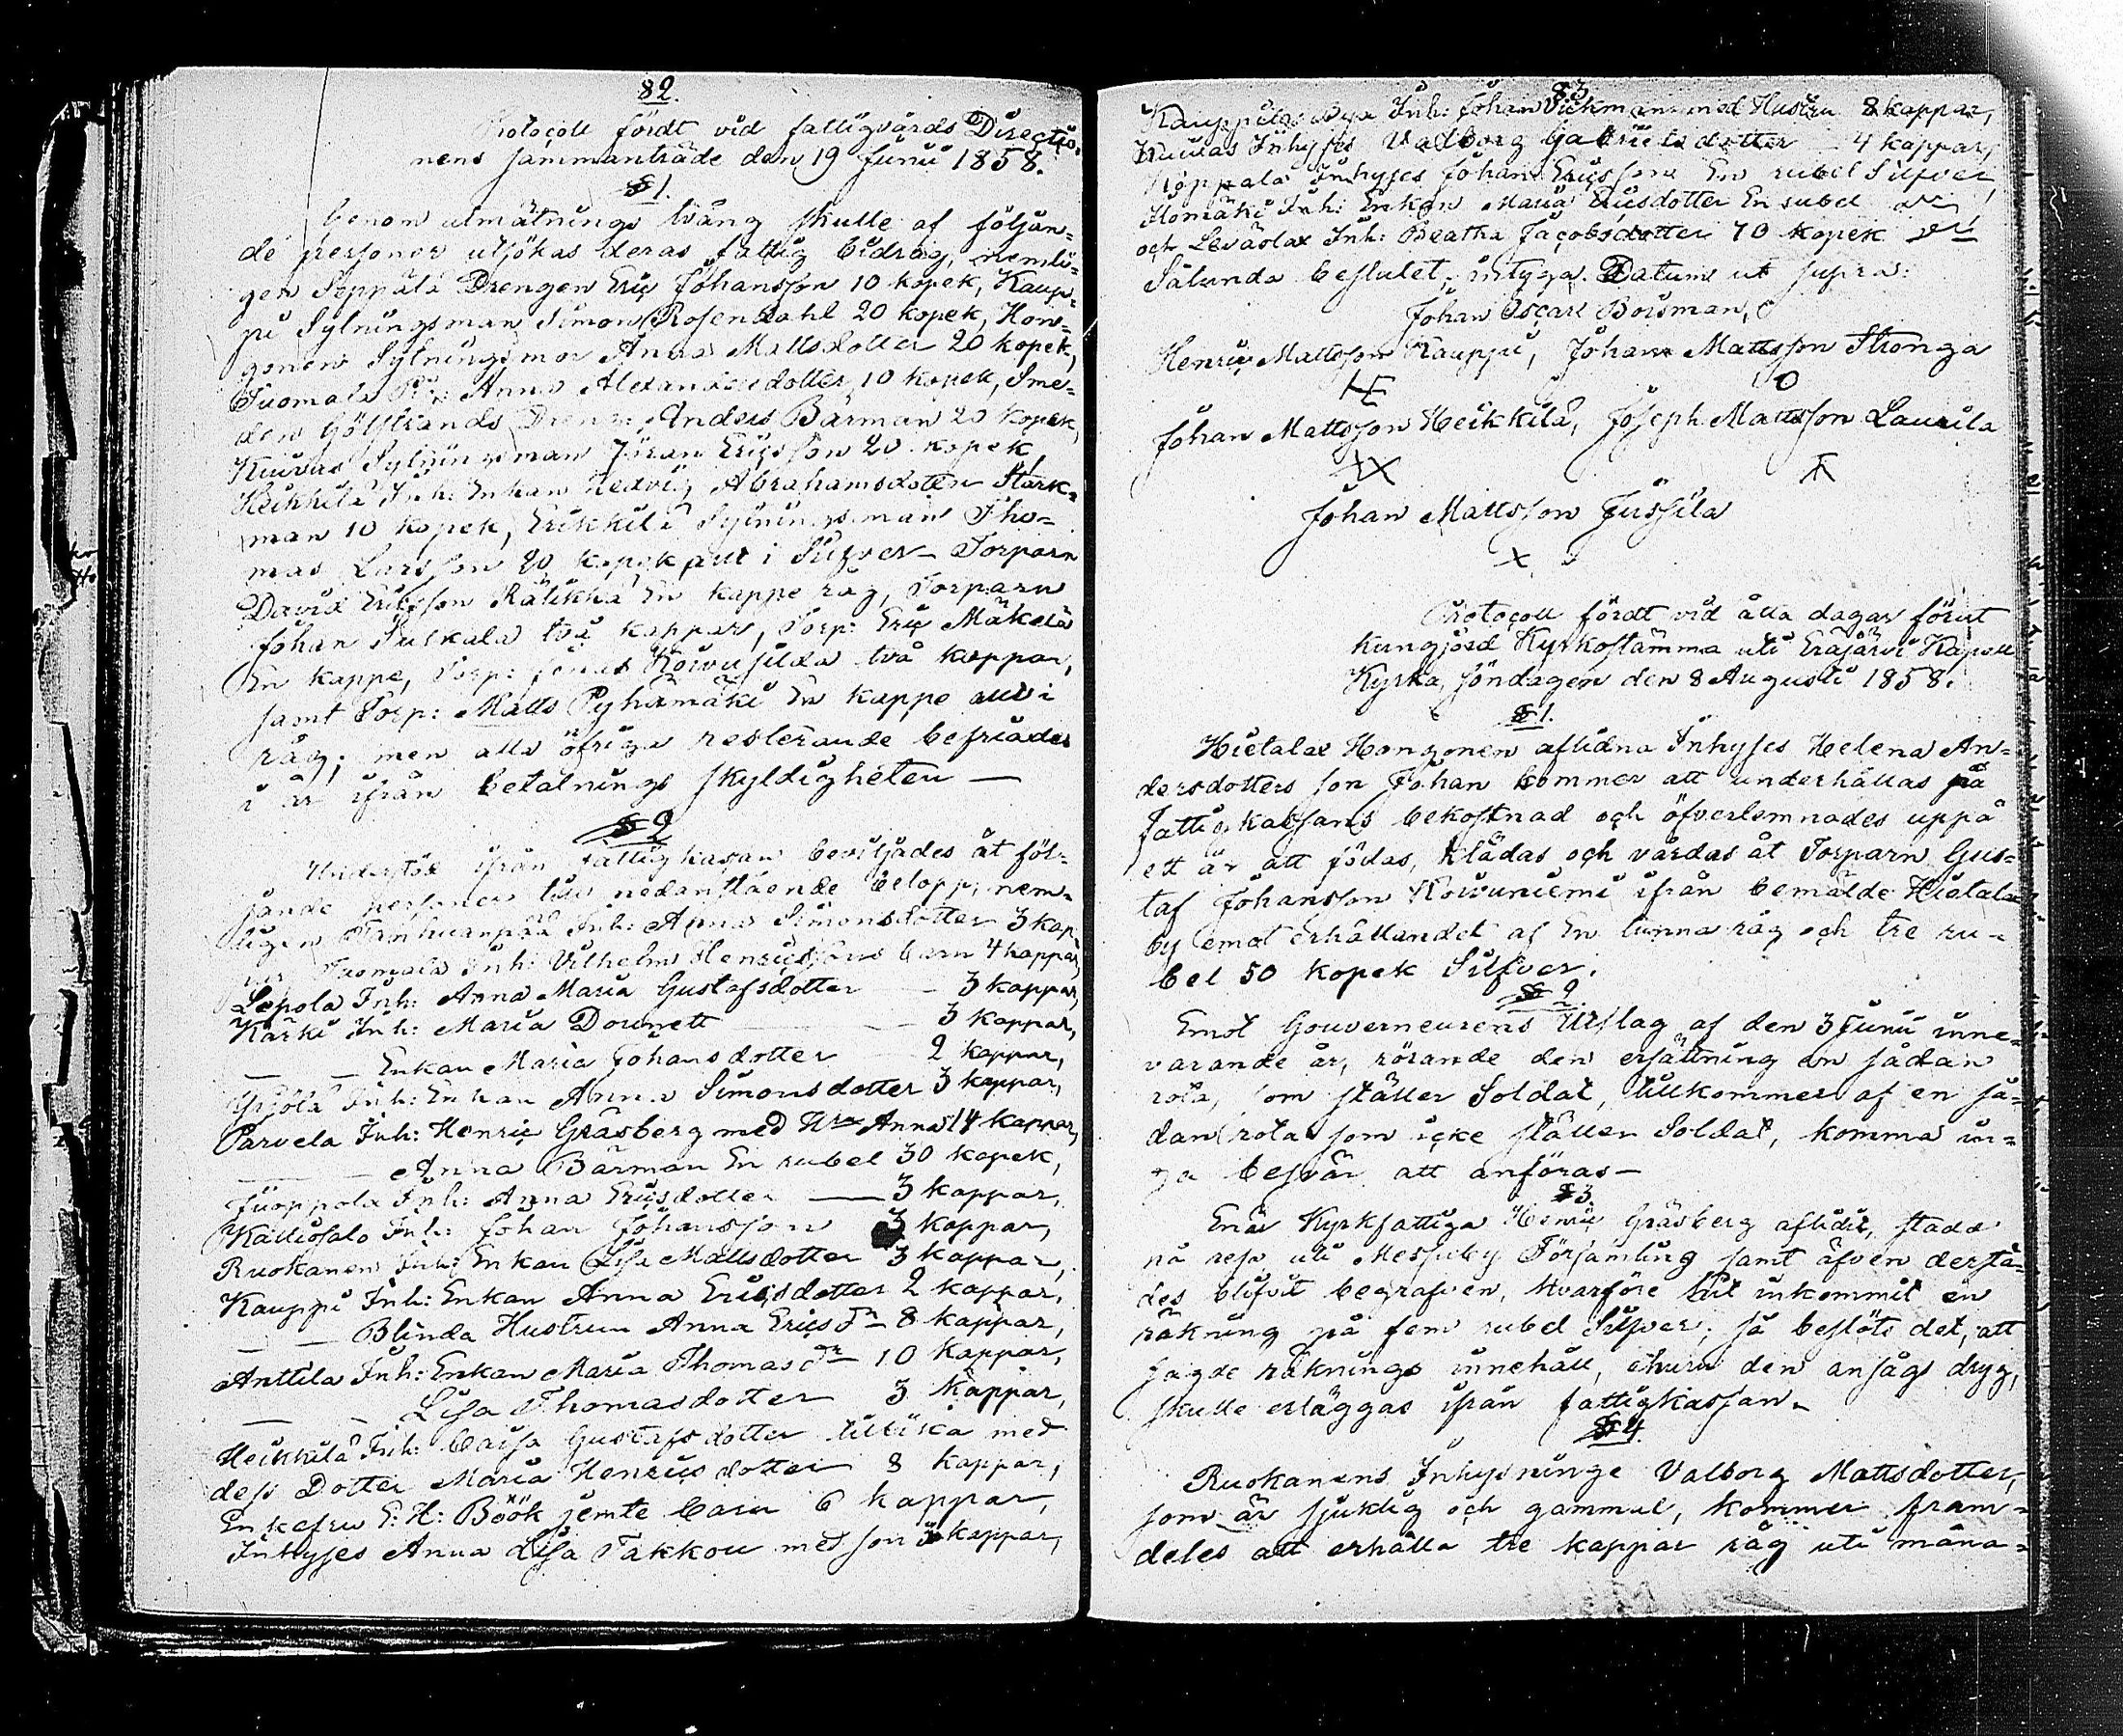 82.
Protocoll fördt vid fattigvårds Directio-
nens sammanträde den 19 Junii 1858.
§ 1.
Genom utmätnings tvång skulle af följan-
de personer utsökas deras fattig bidrag, nemli-
gen Seppälä Drengen Eric Johansson 10 kopek, Kaup-
pi Sytningsman Simon Rosendahl 20 kopek, Hon-
gonens Sytningsmor Anna Mattsdotter 20 kopek,
Tuomala Anna Alexandersdotter 10 kopek, Sme-
den Göhstrands Dreng: Anders Bärman 20 kopek,
Kuivas Sytningsman Jöran Ericsson 20 kopek,
Heikkilä Inh: Enkan Hedvig Abrahamsdotter Stark-
man 10 kopek, Erikkilä Sytningsman Tho-
mas Larsson 20 kopek allt i Silfver Torparn
David Ericsson Rälikkä En kappe råg, Torparn
Johan Sulkala två kappar, Torp: Eric Mäkelä
En kappe, Torp: Jonas Koivusilda två kappar,
samt Torp: Matts Pyhämäki En kappe allt i
råg; men alla öfriga resterande befriades
i år ifrån betalnings skyldigheten —
§ 2
Understöd ifrån fattigkassan beviljades åt föl-
jande personer till nedanstående belopp, nem-
ligen Tanhuanpää Inh: Anna Simonsdotter 3 kap-
par Tuomala Inh: Vilhelm Henricssons barn 4 kappar,
Lepola Inh: Anna Maria Gustafsdotter — 3 kappar,
Kärki Inh: Maria Dournett — 3 kappar,
— — Enkan Maria Johansdotter — 2 kappar,
Yrjölä Inh: Enkan Anna Simonsdotter 3 kappar,
Parvela Inh: Henric Gräsberg med Hru Anna 14 kappar,
— — Anna Bärman En rubel 30 kopek,
Juoppola Inh: Anna Ericsdotter — 3 kappar,
Kalliosalo Inh: Johan Johansson 3 kappar,
Ruokanen Inh: Enkan Lisa Mattsdotter 3 kappar,
Kauppi Inh: Enkan Anna Ericsdotter 2 kappar,
— — Blinda Hustrun Anna Erics Dr 8 kappar,
Anttila Inh: Enkan Maria Thomas Dr 10 kappar,
— — Lisa Thomasdotter 3 kappar,
Heikkilä Inh: Caisa Gustafsdotter tillika med
dess Dotter Maria Henricsdotter 8 kappar,
Enkefru E: H: Böök jemte barn 6 kappar,
Inhyses Anna Lisa Takkou med son 3 kappar,
83.
Kauppila Inh: Johan Vickman med Hustru 8 kappar,
Kuivas Inhyses Valborg Gabrielsdotter — 4 kappar,
Koppala Inhyses Johan Ericsson En rubel Silfver,
Ilomäki Inh: Enkan Maria Ericsdotter En rubel
och Leväslax Inh: Beatha Jacobsdotter 70 kopek
Sålunda beslutet, intyga. Datum ut supra:
Johan Oscar Boisman,
Henric Mattsson Kauppi, Johan Mattsson Stronga
Johan Mattsson Heikkilä, Joseph Mattsson Laurila
Johan Mattsson Jussila
Protocoll fördt vid åtta dagar förut
kungjord Kyrkostämma uti Eräjärvi Kapell
Kyrka, söndagen den 8 Augusti 1858.
§ 1.
Hietalax Hongonen aflidna Inhyses Helena An-
dersdotters son Johan kommer att underhållas på
fattigkassans bekostnad och öfverlemnades uppå
ett år att födas, klädas och vårdas åt Torparn Gus-
taf Johansson Koivuniemi ifrån bemälde Hietalax
by emot erhållandet af En tunna råg och tre ru-
bel 50 kopek Silfver.
§ 2.
Emot Gouverneurens Utslag af den 3 Junii inne-
varande år, rörande den ersättning en sådan
rota, som ställer Soldat, tillkommer af en så-
dan rota som icke ställer Soldat, komma in-
ga besvär att anföras —
§ 3.
Enär Kyrkfattiga Henric Gräsberg aflidit, stadd
på resa, uti Messuby Församling samt äfven derstä-
des blifvit begrafven, hvarföre hit inkommit en
räkning på fem rubel Silfver; så beslöts det, att
sagde räknings innehåll, ehuru den ansågs dryg,
skulle erläggas ifrån fattigkassan.
§ 4
Ruokanens Inhysninge Valborg Mattsdotter,
som är sjuklig och gammal, kommer fram-
deles att erhålla tre kappar råg uti måna-